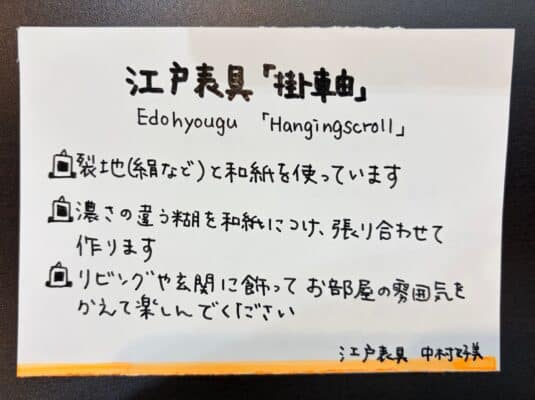 江戸表具「掛軸」
Edohyougu 「Hangingscroll」
裂地(絹など)と和紙を使っています
濃さの違う糊を和紙につけ、張り合わせて
作ります
リビングや玄関に飾って お部屋の雰囲気を
かえて楽しんでください
江戸表具 中村